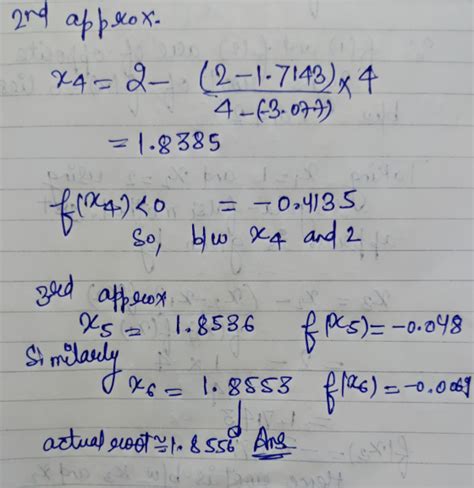 2nd approx.
x4 = 2 - (2-1.7143)/(4-(-3.077)) x 4
= 1.8385
f(x4)<0 = -0.4135
So, b/w x4 and 2
3rd approx
x5 = 1.8536 f(x5)=-0.048
Similarly
x6 = 1.8553 f(x6)=-0.0069
actual root ≈ 1.8556 Ans